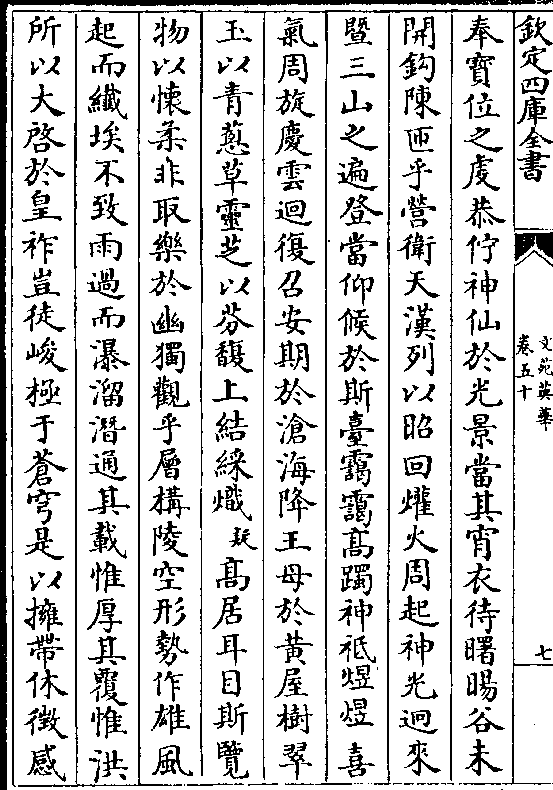 欽定四庫全書
文苑英華
卷五十
七
奉寶位之虔恭佇神仙於光景當其宵衣待曙暘谷未
開鈎陳匝乎營衛天漢列以昭回爟火周起神光迥來
暨三山之遍登當仰候於斯臺靄靄高躅神祗煜煜喜
氣周旋慶雲迴復召安期於滄海降王母於黃屋樹翠
玉以青葱草靈芝以芬馥上結綵熾疑高居耳目斯覽
物以懷柔非取樂於幽獨觀乎層構陵空形勢作雄風
起而纖埃不致雨過而瀑溜潛通其載惟厚其覆惟洪
所以大啓於皇祚豈徒峻極于蒼穹是以擁帶休徵感